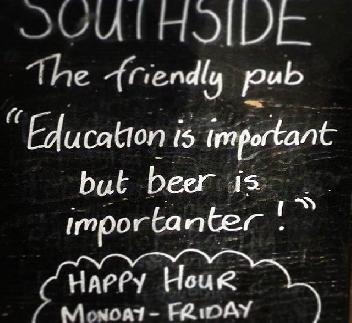 SOUTHSIDE
The friendly pub
"Education is important
but beer is
importanter!"
HAPPY HOUR
MONDAY - FRIDAY